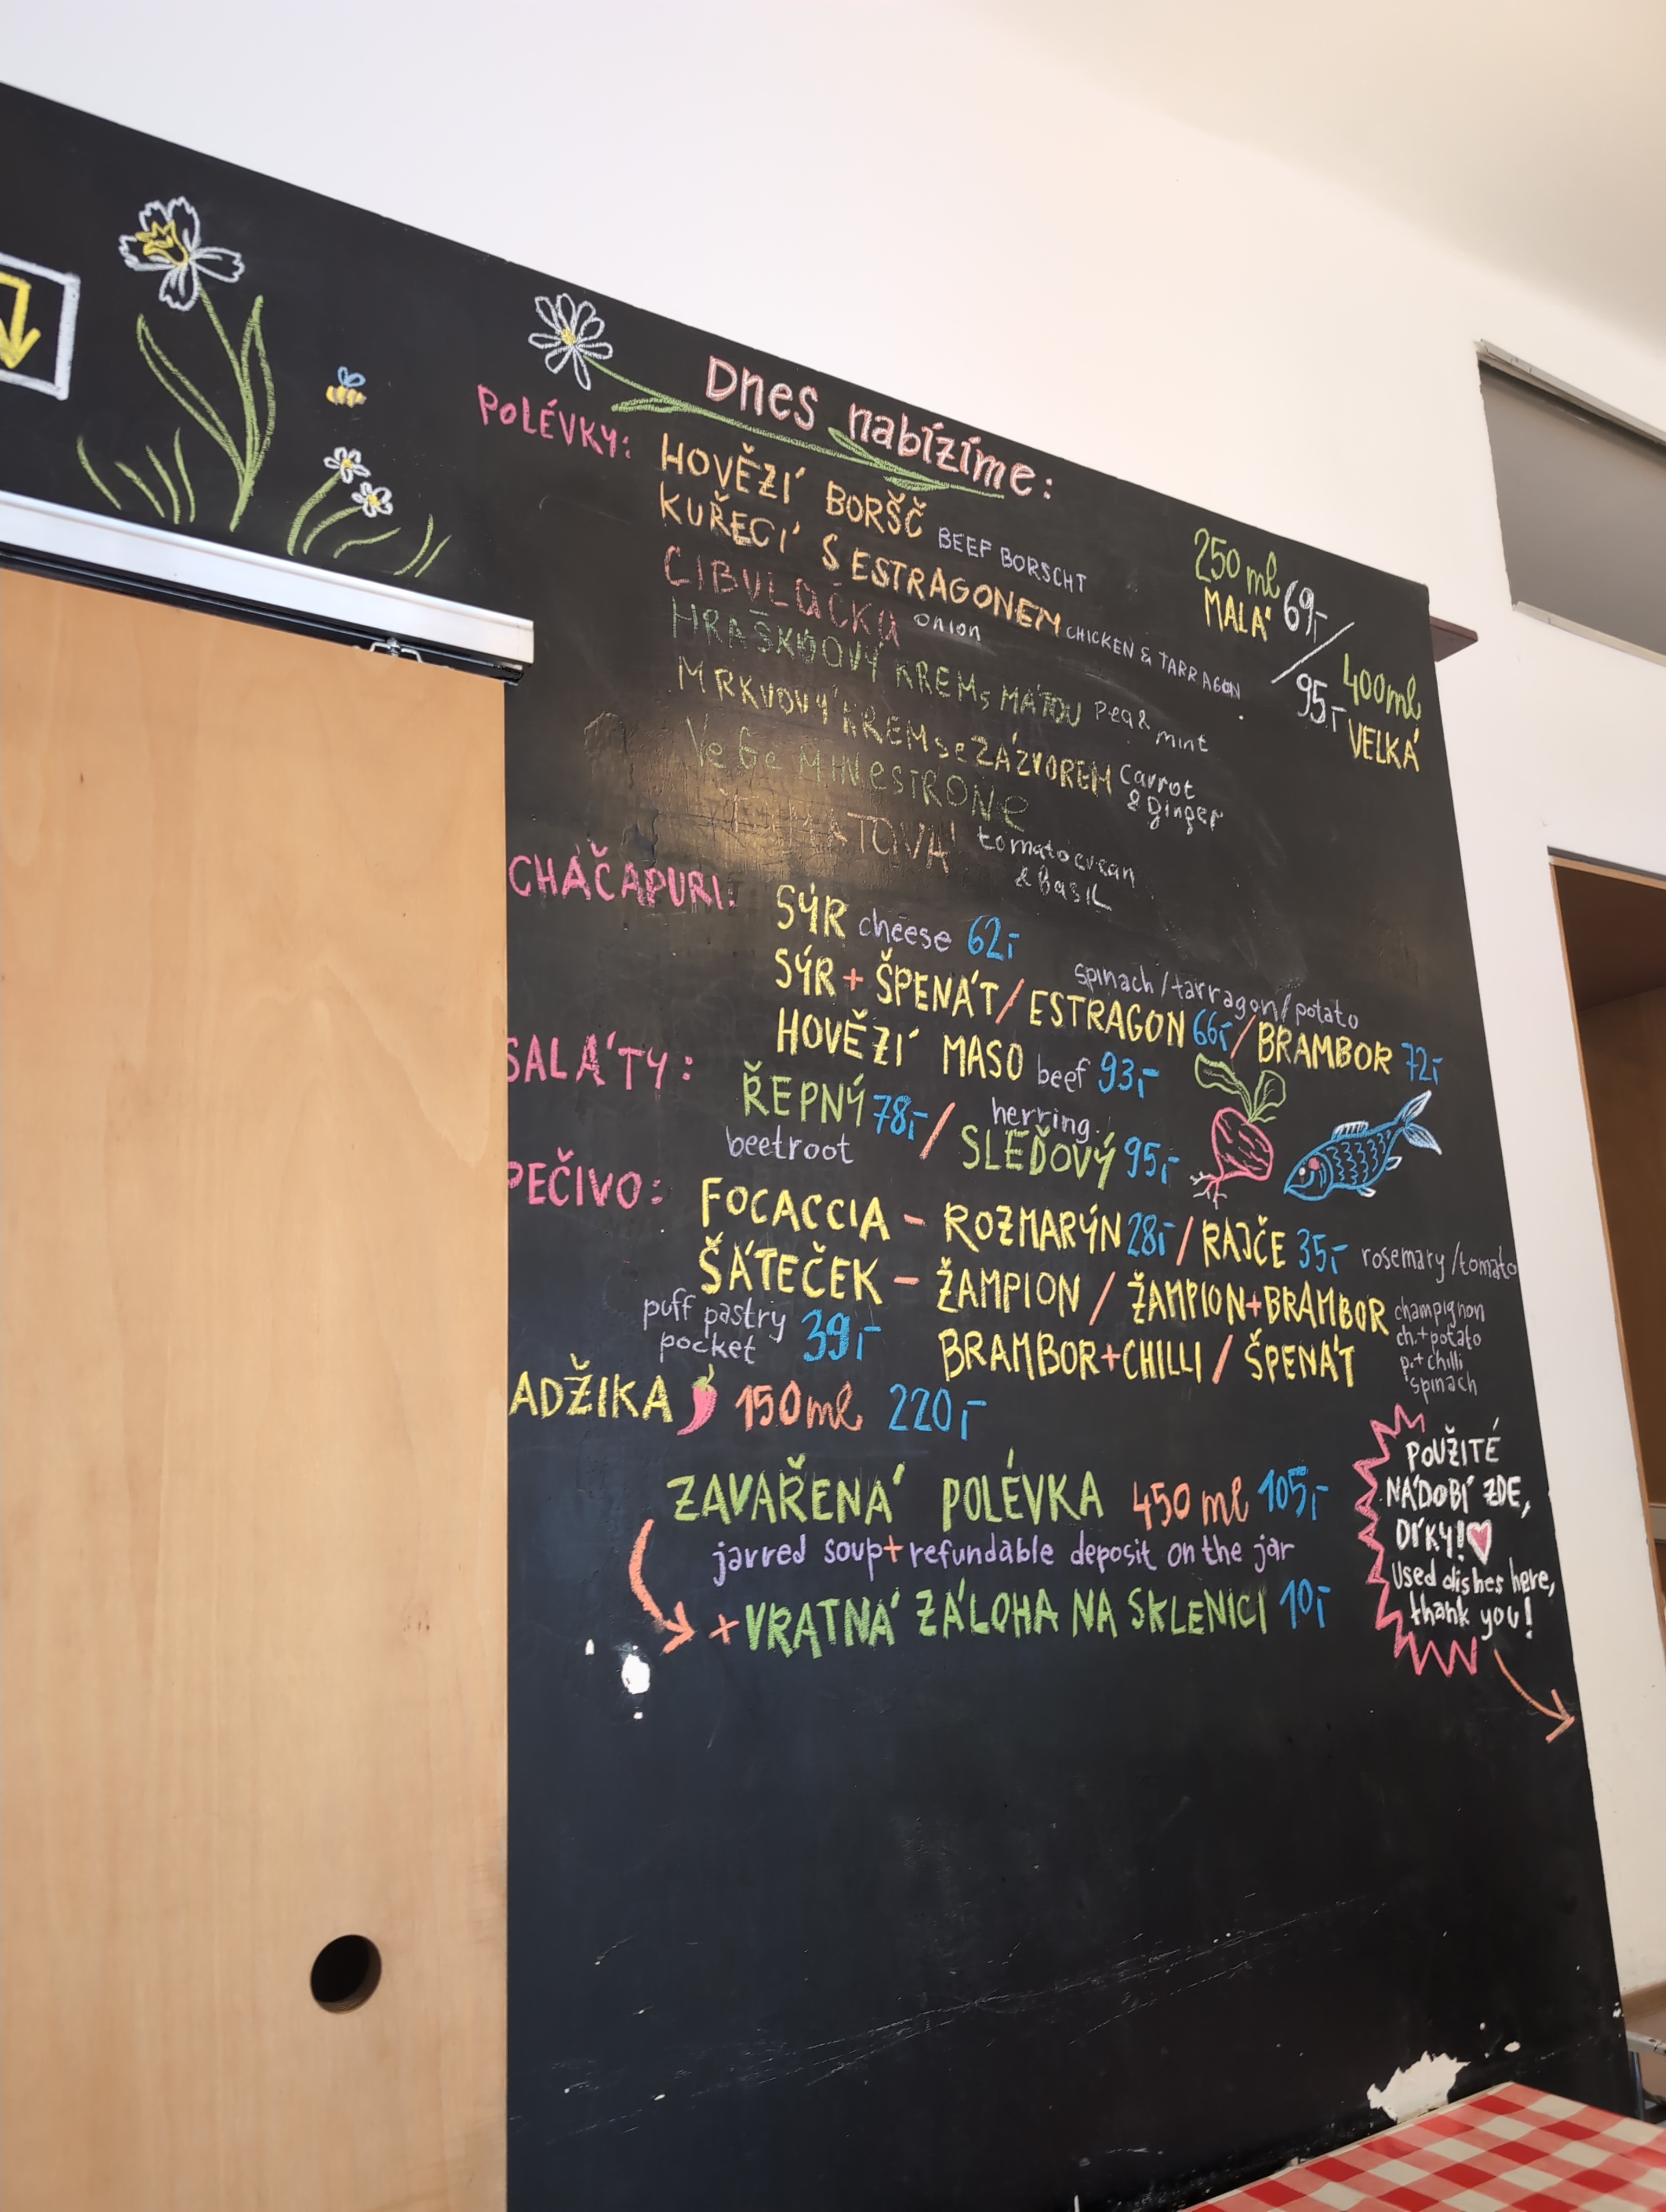 Dnes nabízíme:
POLÉVKY:
HOVĚZÍ BORŠČ BEEF BORSCHT
KUŘECÍ S ESTRAGONEM CHICKEN & TARRAGON
CIBULAČKA onion
HRÁŠKOVÝ KRÉM s MÁTOU pea & mint
MRKVOVÝ KRÉM se ZÁZVOREM Carrot & Ginger
VeGe MINeSTRONe
tomato cream & BasiL
250 ml 69,-
MALÁ
400ml
95,- VELKÁ
CHAČAPURI:
SÝR cheese 62,-
spinach/tarragon/potato
SÝR + ŠPENÁT/ESTRAGON 66,-/BRAMBOR 72,-
HOVĚZÍ MASO beef 93,-
SALÁTY:
ŘEPNÝ 78,- / SLEĎOVÝ 95,-
beetroot herring
PEČIVO:
FOCACCIA - ROZMARÝN 28,- / RAJČE 35,- rosemary/tomato
ŠÁTEČEK - ŽAMPION / ŽAMPION+BRAMBOR
BRAMBOR+CHILLI / ŠPENÁT
puff pastry
pocket 39,-
champignon
ch.+potato
p.+chilli
spinach
ADŽIKA 150ml 220,-
ZAVAŘENÁ POLÉVKA 450 ml 105,-
jarred soup+refundable deposit on the jar
+VRATNÁ ZÁLOHA NA SKLENICI 10,-
POUŽITÉ
NÁDOBÍ ZDE,
DÍKY!
Used dishes here,
thank you!